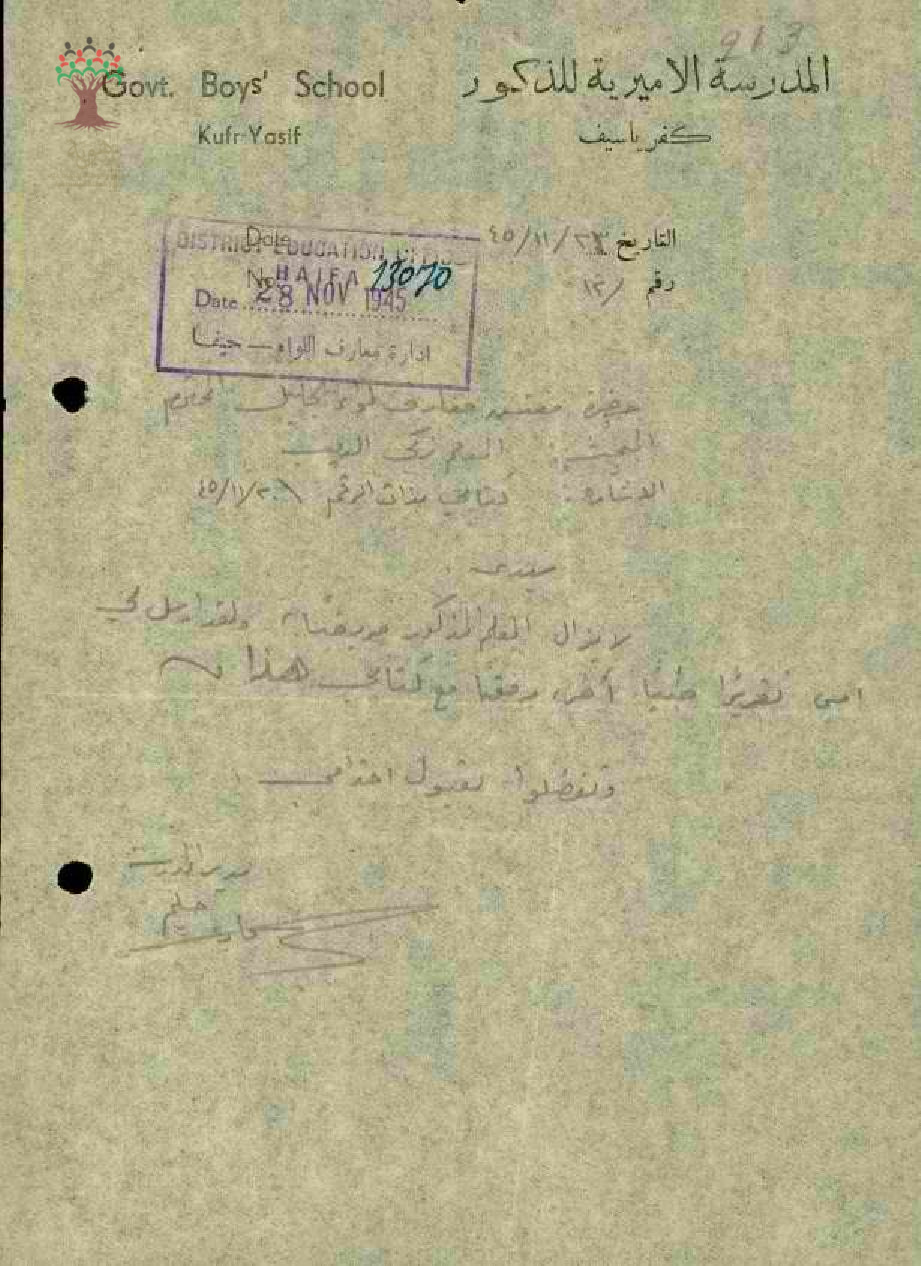 913
Govt. Boys' School المدرسة الاميرية للذكور
Kufr-Yasif كفر ياسيف
Date التاريخ ٢٣/١١/٤٥
No. رقم ١٢/
DISTRICT EDUCATION OFFICE
HAIFA 13070
Date 28 NOV 1945
ادارة معارف اللواء – حيفا
حضرة مفتش معارف لواء الجليل المحترم
المعلم زكي
الاشارة: كتابي بذات الرقم ٤٥/١١/٢٠
سيدي
لا يزال المعلم المذكور مريضا ولقد ارسل لي
امس تقريرًا طبيًا آخر، رفقًا مع كتابي هذا
وتفضلوا بقبول احترامي
مدير المدرسة